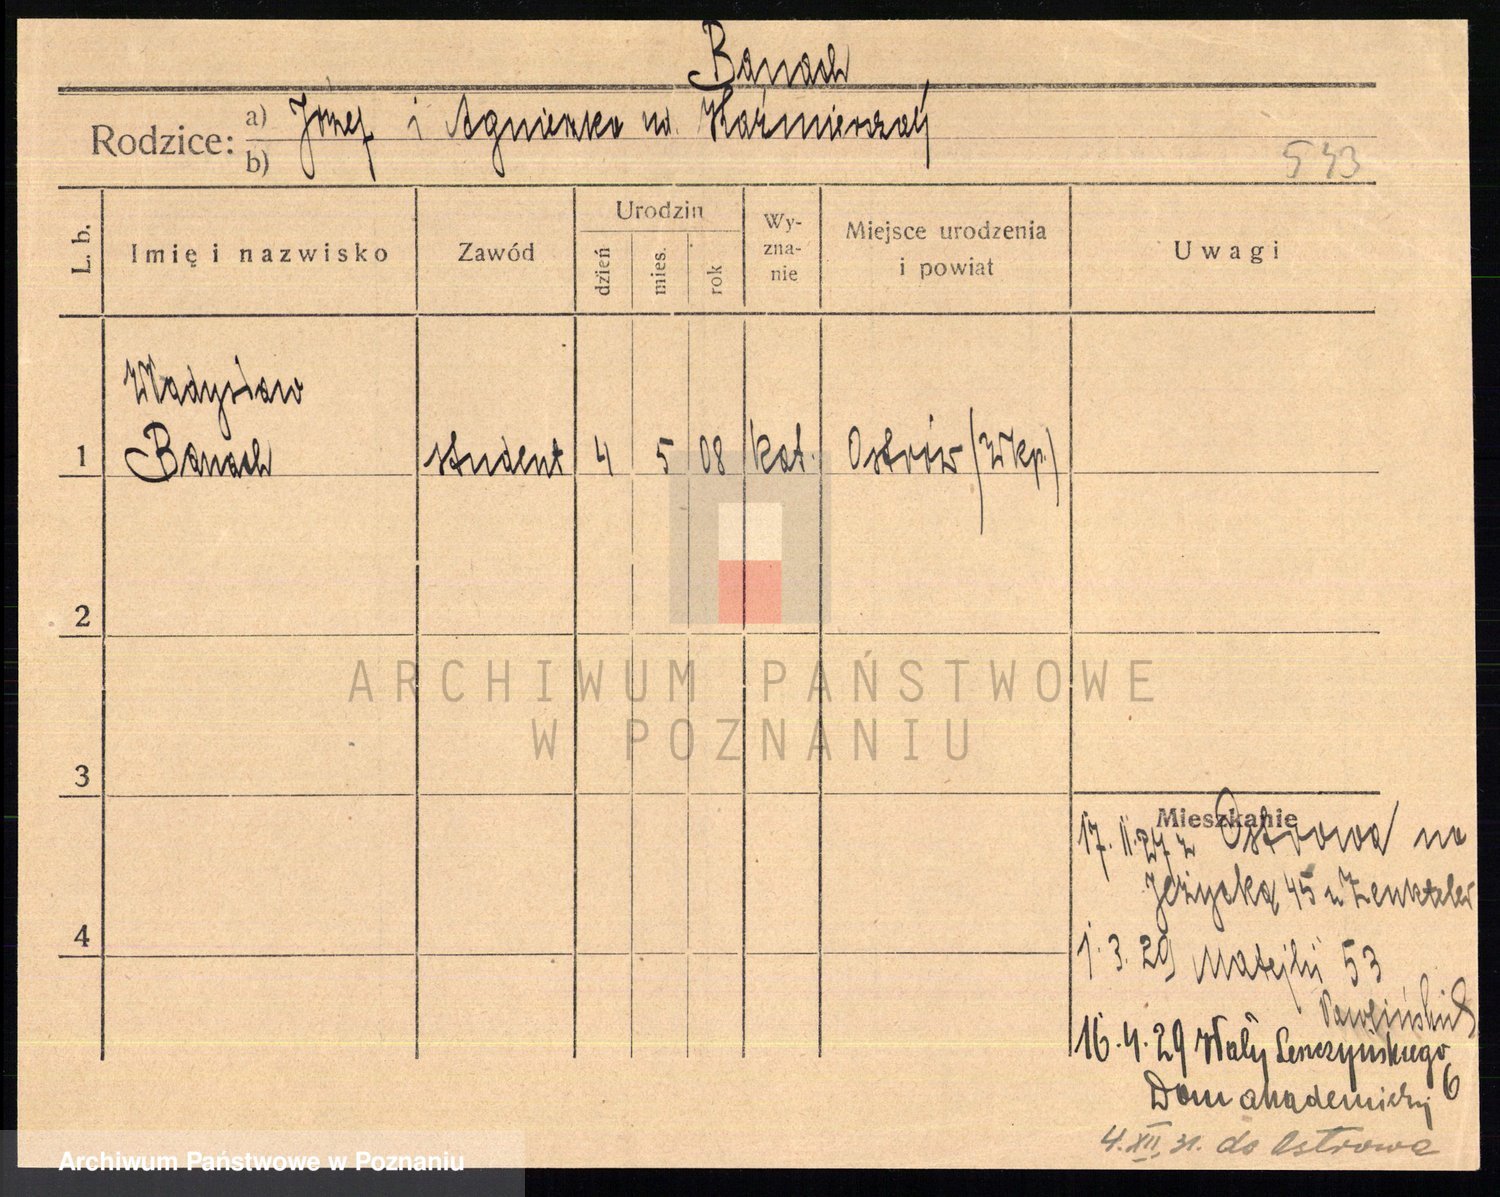 Banach
Rodzice: a) Józef i Agnieszka ur. Kaźmierczak
b)
543
L. b.
Imię i nazwisko
Zawód
Urodzin
dzień
mies.
rok
Wy-
zna-
nie
Miejsce urodzenia
i powiat
Uwagi
Władysław
1 Banach student 4 5 08 kat. Ostrów (Wlkp.)
2
ARCHIWUM PAŃSTWOWE
W POZNANIU
3
Mieszkanie
17. II. 27 z Ostrowa na
Jeżycką 45 u Zenkteler
4
1. 3. 29 Matejki 53
16.4.29 Wały Leszczyńskiego
6
Dom akademicki
4.XII.31. do Ostrowa
Archiwum Państwowe w Poznaniu